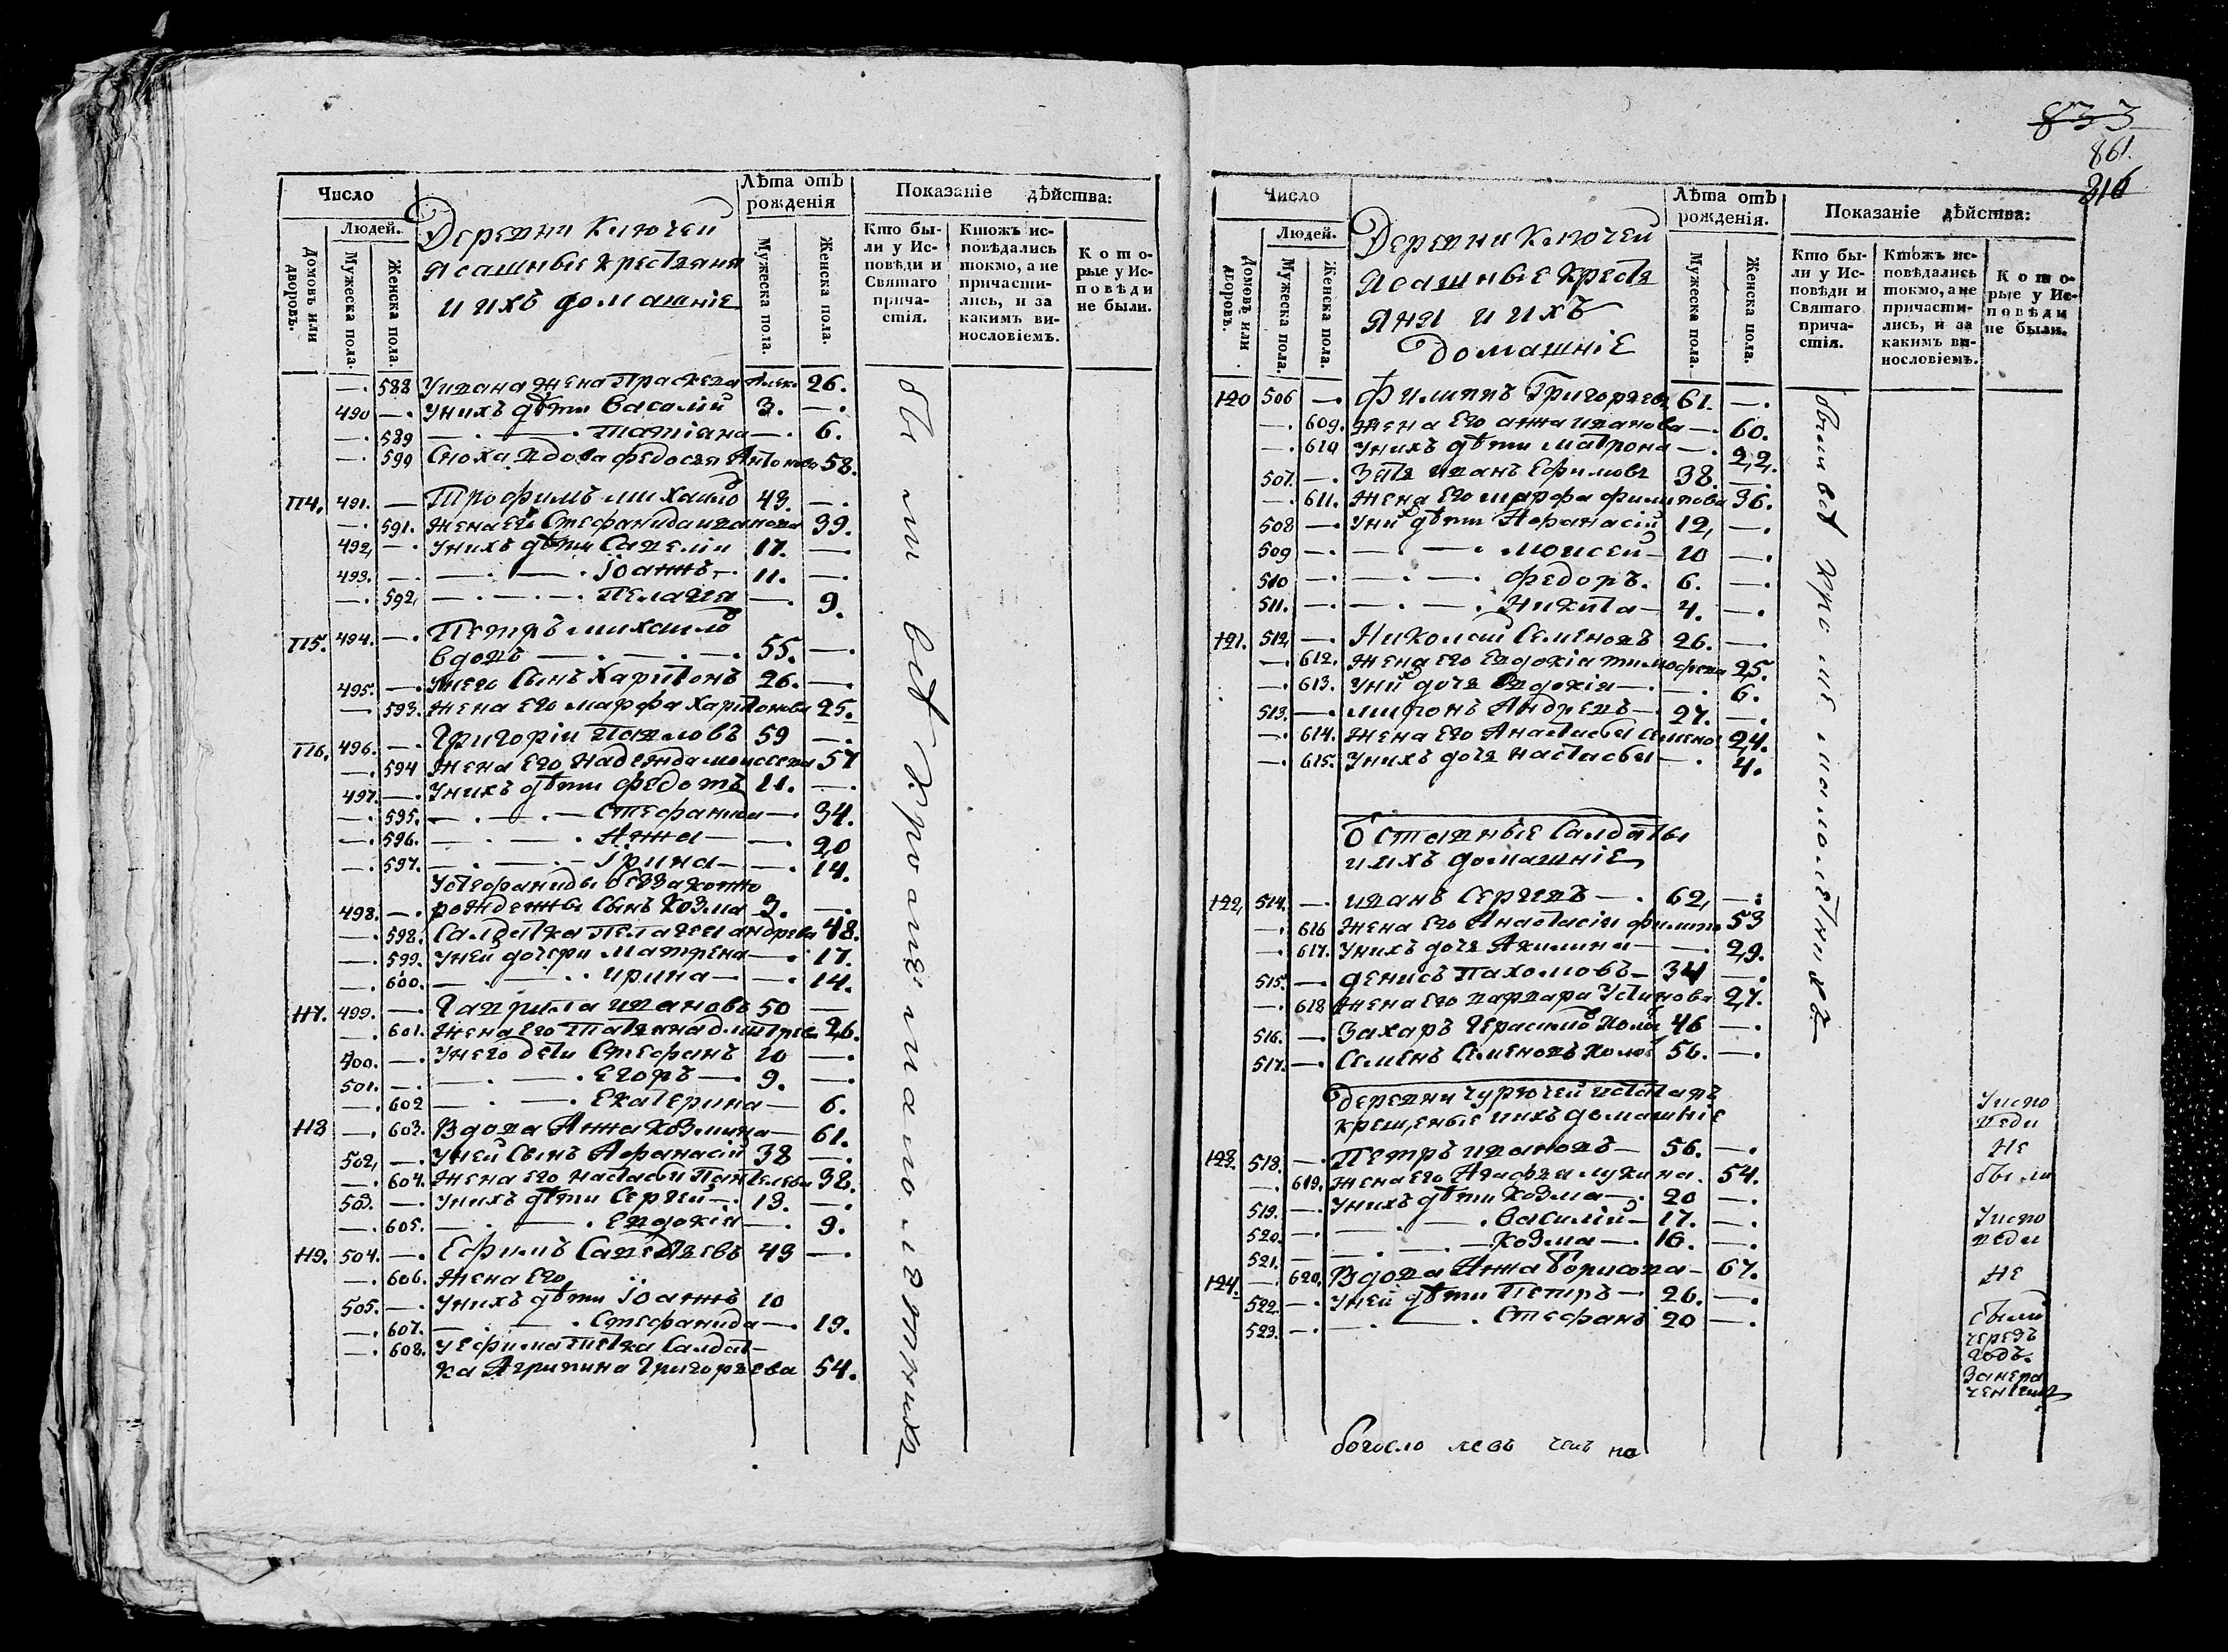 Число
Людей.
Домовъ или дворовъ.
Мужеска пола.
Женска пола.
Деревни Ключей
Ясашные крестьяня
и ихъ домашніе
Лѣта отъ рожденія
Мужеска пола.
Женска пола.
Показаніе дѣйства:
Кто были у Исповѣди и Святаго причастія.
Ктожъ исповѣдались токмо, а не причастились, и за какимъ винословіемъ.
Которые у Исповѣди не были.
—. 588 Уивана жена Праскева Алекс 26.
490 —. Унихъ дѣти Василій 3. —.
—. 589 —. —. Татіана —. 6.
—. 590 Сноха вдова Федосья Антонова 58.
114. 491. — Трофимъ Михаило 43. —.
—. 591. Жена его Стефанида иванова 39.
492, —. Унихъ дѣти Савелій 17. —.
493. —. —. —. Іоаннъ —. 11. —.
—. 592, —. —. —. Пелагия —. 9.
115. 494. —. Петръ михаило
вдовъ —. —. —. 55. —.
495. —. Унего Сынъ Харитонъ 26. —.
— 593. Жена Его марфа Харитонова 25.
116. 496. —. Григорій Павловъ 59 —.
—. 594 Жена Его Надежда моисеева 57
497. —. Унихъ дѣти Федотъ 11. —.
—. 595. —. —. Стефанида —. 34.
—. 596. —. —. Анна —. 20
—. 597. —. —. Ірина —. 14.
Устефаниды беззаконно
498. —. рожденны Сынъ Козма 3. —.
—. 598. Салдатка Пелагея андреева 48.
—. 599. Уней дочери Матрена —. 17.
—. 600. —. —. ирина —. 14.
117. 499. —. Гаврила ивановъ 50 —.
—. 601. Жена Его Татьяна дмитрева 26.
400. —. Унего дети Стефанъ 10 —.
501. —. —. —. Егоръ —. 9. —.
—. 602 —. —. Екатерина — 6.
118 —. 603. Вдова Анна козмина — 61.
502, —. Уней Сынъ Афанасій 38 —.
—. 604. Жена Его настасья Пантелева 38.
503. —. Унихъ дѣти Сергей —. 13. —.
—. 605. —. —. Евдокія —. 9.
119. 504. —. Ефимъ Савельевъ 43 —.
—. 606. Жена Его
505. —. Унихъ дѣти Іоаннъ 10
—. 607. —. —. Стефанида —. 19.
—. 608. Уефима тетка Салдат-
ка Агрипина Григорьева 54.
были всѣ кромѣ малолетнихъ
833
861.
316
Число
Людей.
Домовъ или дворовъ.
Мужеска пола.
Женска пола.
Деревни Ключей
Ясашные крестья
яня и ихъ
Домашніе
Лѣта отъ рожденія.
Мужеска пола.
Женска пола.
Показаніе дѣйства:
Кто были у Исповѣди и Святаго причастія.
Ктожъ исповѣдались токмо, а не причастились, и за какимъ винословіемъ.
Которые у Исповѣди не были.
120 506 —. Филиппъ Григорьевъ 61. —.
—. 609. Жена Его анна иванова —. 60.
—. 610 Унихъ дѣти Матрона —. 22.
507. —. Зять иванъ Ефимовъ 38. —.
—. 611. Жена Его марфа филипова 36.
508 —. Уних дѣти Афанасій 12, —.
509 —. —. —. Моисей — 10 —.
510 —. —. —. Федоръ. 6. —.
511. —. —. —. Никита — 4. —.
121. 512 —. Николай Семеновъ 26. —.
—. 612. Жена Его Евдокія тимофеева 25.
—. 613. Уних дочь Евдокія —. —. 6.
513. —. миронъ Андреевъ —. 27. —.
—. 614. Жена Его Анастасья Семенов 24.
—. 615. Унихъ дочь настасья —. 4.
Отставные Салдаты
и ихъ домашніе
122, 514. —. иванъ Сергеевъ —. 62, —.
—. 616 Жена Его Анастасія филипо 53
—. 617. Унихъ дочь Акилина —. 29.
515. —. денисъ Пахомовъ — 34 —.
—. 618 Жена Его варвара Устинова 27.
516. —. Захаръ Герасимо холос 46 —.
517. —. Семенъ Семеновъ холос 56. —.
Деревни Чурючей изтатаръ
крещеные ихъ домашніе
123. 518. —. Петръ ивановъ — 56. —.
—. 619. Жена его Агафья лукина. 54.
519. —. Унихъ дѣти Козма —. 20 —.
520. —. —. Василій — 17. —.
521. —. —. —. Козма —. 16. —.
124. —. 620, Вдова Анна Борисова — 67.
522. —. Уней дѣти Петръ —. 26. —.
523. —. —. —. Стефанъ 20 —.
были всѣ кромѣ малолѣтнихъ
Уиспо
веди
не
были
Уиспо
веди
не
были
черезъ
годъ.
Занера
чениемъ